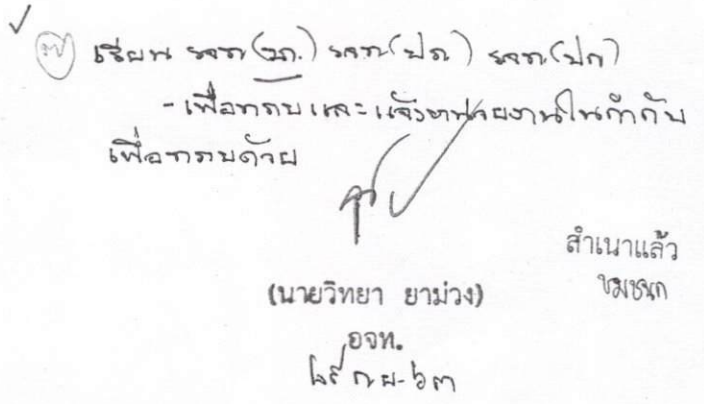 เรียน รจท.(บก.) รจท.(ปถ) รจท.(ปก)
- เพื่อทราบและแจ้งหน่วยงานในกำกับ
เพื่อทราบด้วย
สำเนาแล้ว
(นายวิทยา ยาม่วง)
อจท.